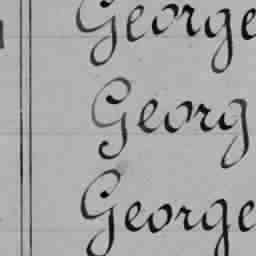 George
Georg
George